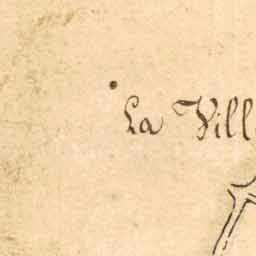 La Vill